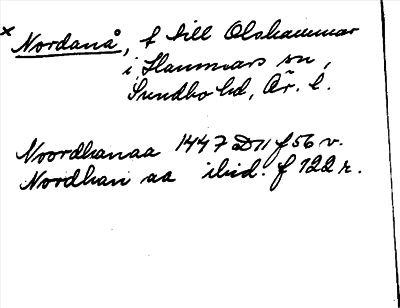 × Nordanå, f till Olshammar
i Hammars sn,
Sundbo hd, Ör. l.
Noordhanaa 1447 D11 f 56 v.
Nordhan aa ibid. f 122 r.